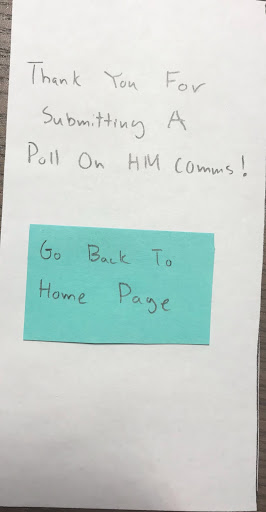 Thank You For
Submitting A
Poll On HM Comms!
Go Back To
Home Page